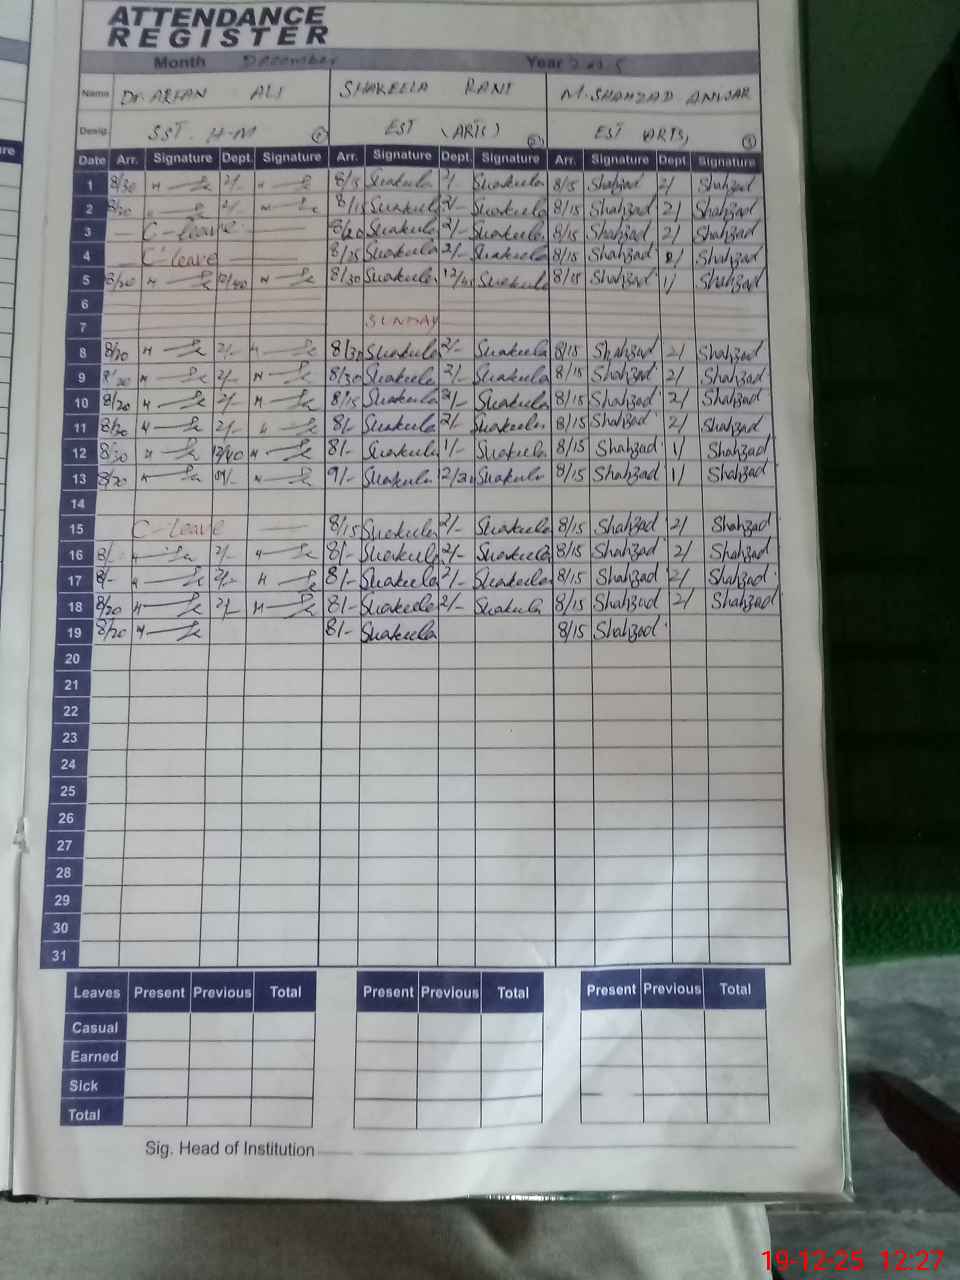 ATTENDANCE
REGISTER
Month December Year 2025
Name Dr. ARFAN ALI SHAKEELA RANI M. SHAHZAD ANWAR
Desig. SST. H-M EST (ARTS) EST (ARTS)
Date Arr. Signature Dept. Signature Arr. Signature Dept. Signature Arr. Signature Dept. Signature
1 8/30 2/- 8/15 Shakeela 2/ Shakeela 8/15 Shahzad 2/ Shahzad
2 8/20 2/- 8/15 Shakeela 2/- Shakeela 8/15 Shahzad 2/ Shahzad
3 C-leave 8/20 Shakeela 2/- Shakeela 8/15 Shahzad 2/ Shahzad
4 C-leave 8/25 Shakeela 2/- Shakeela 8/15 Shahzad 2/ Shahzad
5 8/20 12/40 8/30 Shakeela 12/45 Shakeela 8/15 Shahzad 1/ Shahzad
6
7 SUNDAY
8 8/20 2/- 8/30 Shakeela 2/- Shakeela 8/15 Shahzad 2/ Shahzad
9 8/20 2/- 8/30 Shakeela 2/- Shakeela 8/15 Shahzad 2/ Shahzad
10 8/20 2/- 8/15 Shakeela 2/- Shakeela 8/15 Shahzad 2/ Shahzad
11 8/20 2/- 8/- Shakeela 2/- Shakeela 8/15 Shahzad 2/ Shahzad
12 8/30 12/40 8/- Shakeela 1/- Shakeela 8/15 Shahzad 1/ Shahzad
13 8/20 9/- Shakeela Shakeela 8/15 Shahzad 1/ Shahzad
14
15 C-leave 8/15 Shakeela 2/- Shakeela 8/15 Shahzad 2/ Shahzad
16 8/- 2/- 8/- Shakeela 2/- Shakeela 8/15 Shahzad 2/ Shahzad
17 8/- 2/- 8/- Shakeela 2/- Shakeela 8/15 Shahzad 2/ Shahzad
18 8/20 2/- 8/- Shakeela 2/- Shakeela 8/15 Shahzad 2/ Shahzad
19 8/20 8/- Shakeela 8/15 Shahzad
20
21
22
23
24
25
26
27
28
29
30
31
Leaves Present Previous Total Present Previous Total Present Previous Total
Casual
Earned
Sick
Total
Sig. Head of Institution
19-12-25 12:27